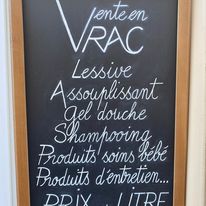 Vente en
VRAC
Lessive
Assouplissant
Gel douche
Shampooing
Produits soins bébé
Produits d'entretien...
PRIX LITRE